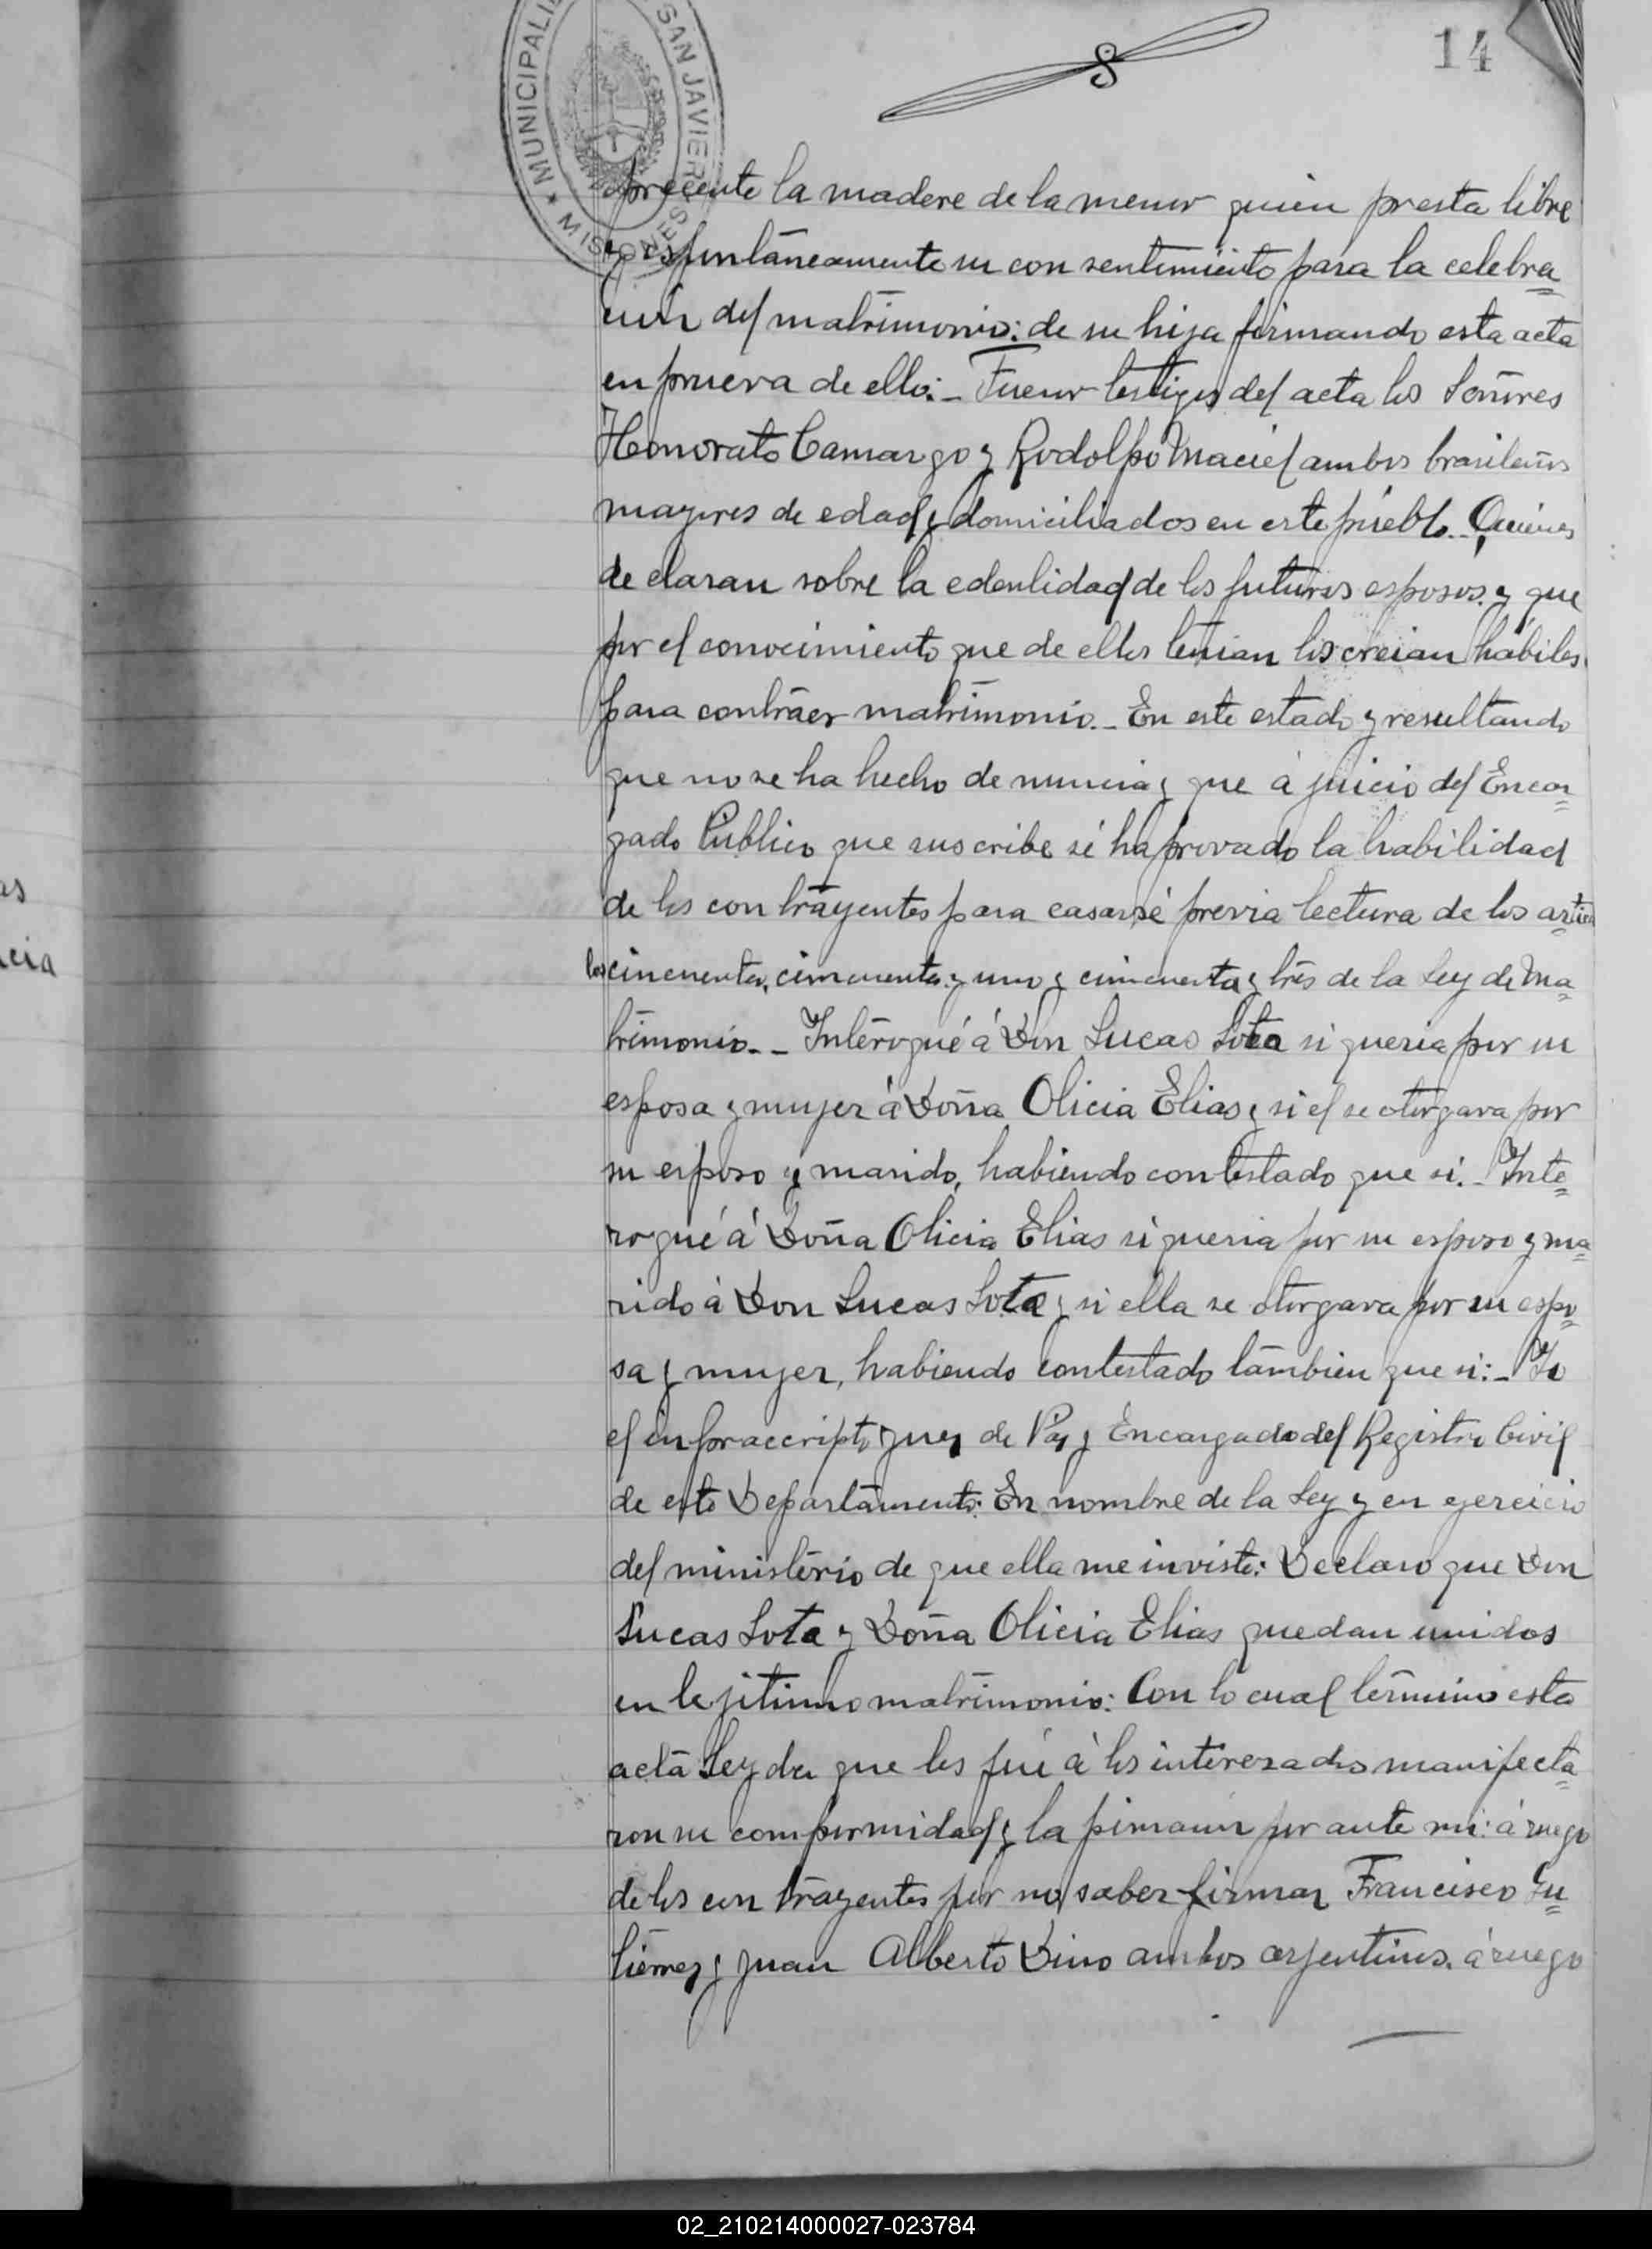 MUNICIPALI SAN JAVIER
★ MISIONES
14
precente la madere de la menor quien presta libre
y espuntáneamente su consentimiento para la celebra
cion del matrimonio: de su hija firmando esta acta
en prueva de ello:- Fueror testigos del acta los Señores
Honorato Camargo y Rodolfo Maciel ambos brasileños
mayores de edad y domiciliados en este pueblo.- Quienes
declaran sobre la edentidad de los futuros esposos y que
por el conocimiento que de ellos tenian los creian hábiles
para contraer matrimonio.- En este estado y resultando
que no se ha hecho denuncia y que á juicio del Encar
gado Publico que suscribe sé ha provado la habilidad
de los contrayentes para casarsé previa lectura de los articu
los cincuenta, cincuenta y uno y cincuenta y tres de la Ley de Ma
trimonio.-- Interogué á Don Lucas Sota si queria por su
esposa y mujer á Doña Olicia Elias y si el se otorgava por
su esposo y marido, habiendo contestado que si.- Inte
rogué á Doña Olicia Elias si queria por su esposo y ma
rido á Don Lucas Sota y si ella se otorgava por su espo
sa y mujer, habiendo contestado tambien que si:- Yo
el infraccripto Juez de Paz y Encargado del Registro Civil
de este Departamento: En nombre de la Ley y en ejercicio
del ministerio de que ella me inviste: Declaro que Don
Lucas Sota y Doña Olicia Elias quedan unidos
en lejitimo matrimonio: Con lo cual termino esta
acta Leyda que les fué á los interezados manifecta
ron su comformidad y la firmaron por ante mi: á ruego
de los contrayentes por no saber firmar Francisco Gu
tierrez y Juan Alberto Dino ambos arjentinos. á ruego
02_210214000027-023784